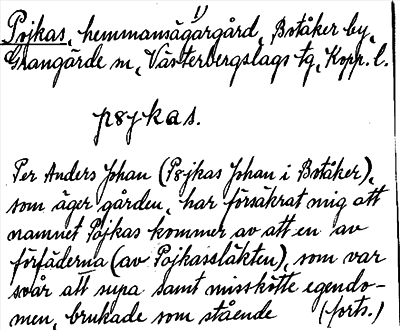 1)
Pojkas, hemmansägargård, Bståker by,
Grangärde sn, Västerbergslags tg, Kopp. l.
pɞjkas.
Per Anders Johan (Pɞjkas Johan i Bståker),
som äger gården, har försäkrat mig att
namnet Pojkas kommer av att en av
förfäderna (av Pojkassläkten), som var
svår att supa samt misskötte egendo-
men, brukade som stående (forts.)